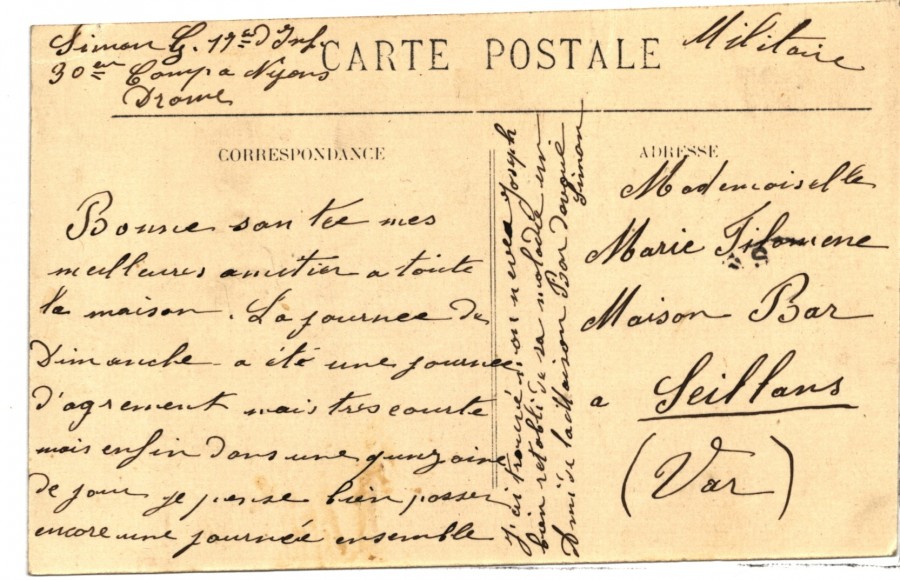 Simon G. 17e d'Inf.
30em Compa Nyons
Drome
CARTE POSTALE
Militaire
CORRESPONDANCE
Bonne santée mes
meilleures amitier a toute
la maison. La journee du
Dimanche a été une journee
d'agrement mais tres courte
mais enfin dans une quinzaine
de jour je pense bien passer
encore une journée ensemble
J'ai trouvé mon neveu Joseph
bien retabli de sa maladie
Ami de la Maison Bar
Simon
ADRESSE
Mademoiselle
Marie Filomene
Maison Bar
a Seillans
(Var)